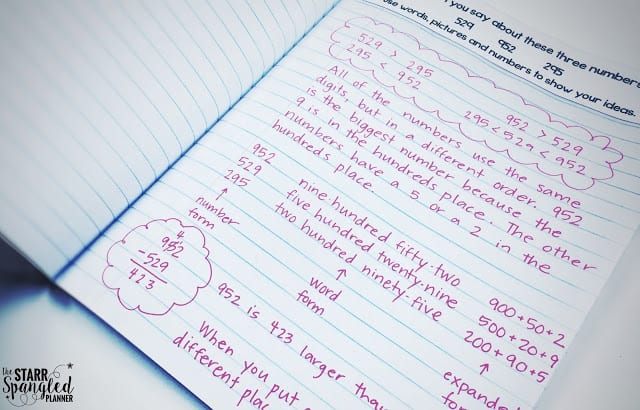 you say about these three numbers
529 952 295
use words, pictures and numbers to show your ideas.
529 > 295
952 > 529
295 < 952
295 < 529 < 952
All of the numbers use the same
digits but in a different order. 952
is the biggest number because the
9 is in the hundreds place. The other
numbers have a 5 or a 2 in the
hundreds place.
952
529
295
↑
number
form
nine hundred fifty-two
five hundred twenty-nine
two hundred ninety-five
↑
word
form
900+50+2
500+20+9
200+90+5
↑
4
952
-529
423
952 is 423 larger
When you put
different
the STARR
Spangled
PLANNER